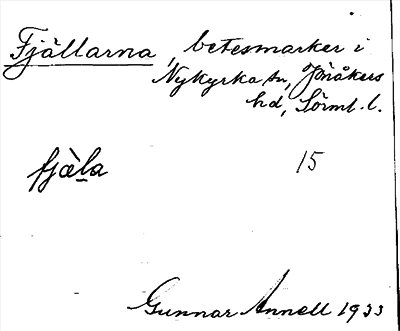 Fjällarna, betesmarker i
Nykyrka sn, Jönåkers
hd, Sörml. l.
fjäla 15
Gunnar Annell 1933